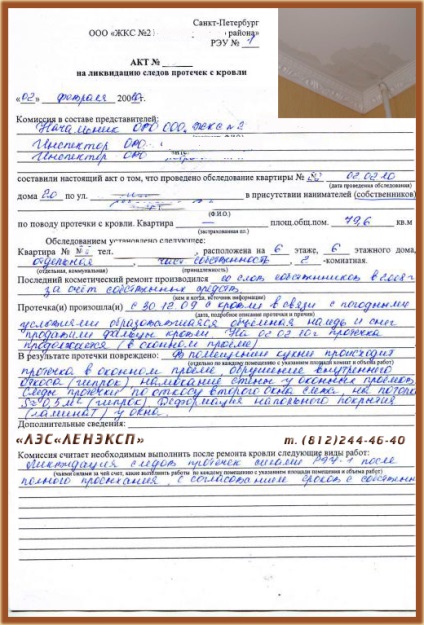 Санкт-Петербург
ООО «ЖКС №2» района»
РЭУ № 1
АКТ №
на ликвидацию следов протечек с кровли
«02» февраля 2010г.
Комиссия в составе представителей:
Начальник ОРО ООО ЖКС №2
Инспектор ОРО
Инспектор ОРО
(Ф.И.О.)
составили настоящий акт о том, что проведено обследование квартиры № 02.02.10
(дата проведения обследования)
дома 20 по ул. в присутствии нанимателей (собственников)
(Ф.И.О.)
по поводу протечки с кровли. Квартира — площ.общ.пом. 79,6 кв.м
(застрахована ли)
Обследованием установлено следующее:
Квартира № тел. , расположена на 6 этаже, 6 этажного дома,
отдельная, собственность, 2 -комнатная.
(отдельная, коммунальная) (принадлежность)
Последний косметический ремонт производился со слов собственников в
за счёт собственных средств
(кем и когда, источник информации)
Протечка(и) произошла(и) с 30.12.09 с кровли в связи с погодными
(дата, подробное описание протечки и причин)
условиями образовавшаяся наледь и снег
кровли На 02.02.10г протечка
продолжается (в оконном проёме)
В результате протечки повреждено: В помещении кухни происходит
протечка в оконном проёме, обрушение внутреннего
откоса (гипрок) намокание стены у оконных проёмов,
следы протечки по откосу второго окна слева, на потолке
(гипрок) Деформация напольного покрытия
(ламинат) у окна.
Дополнительные сведения:
«ЛЭС«ЛЕНЭКСП» т. (812)244-46-40
Комиссия считает необходимым выполнить после ремонта кровли следующие виды работ:
Ликвидация следов протечек силами РЭУ-1 после
полного просыхания, с согласованием сроков с собствен